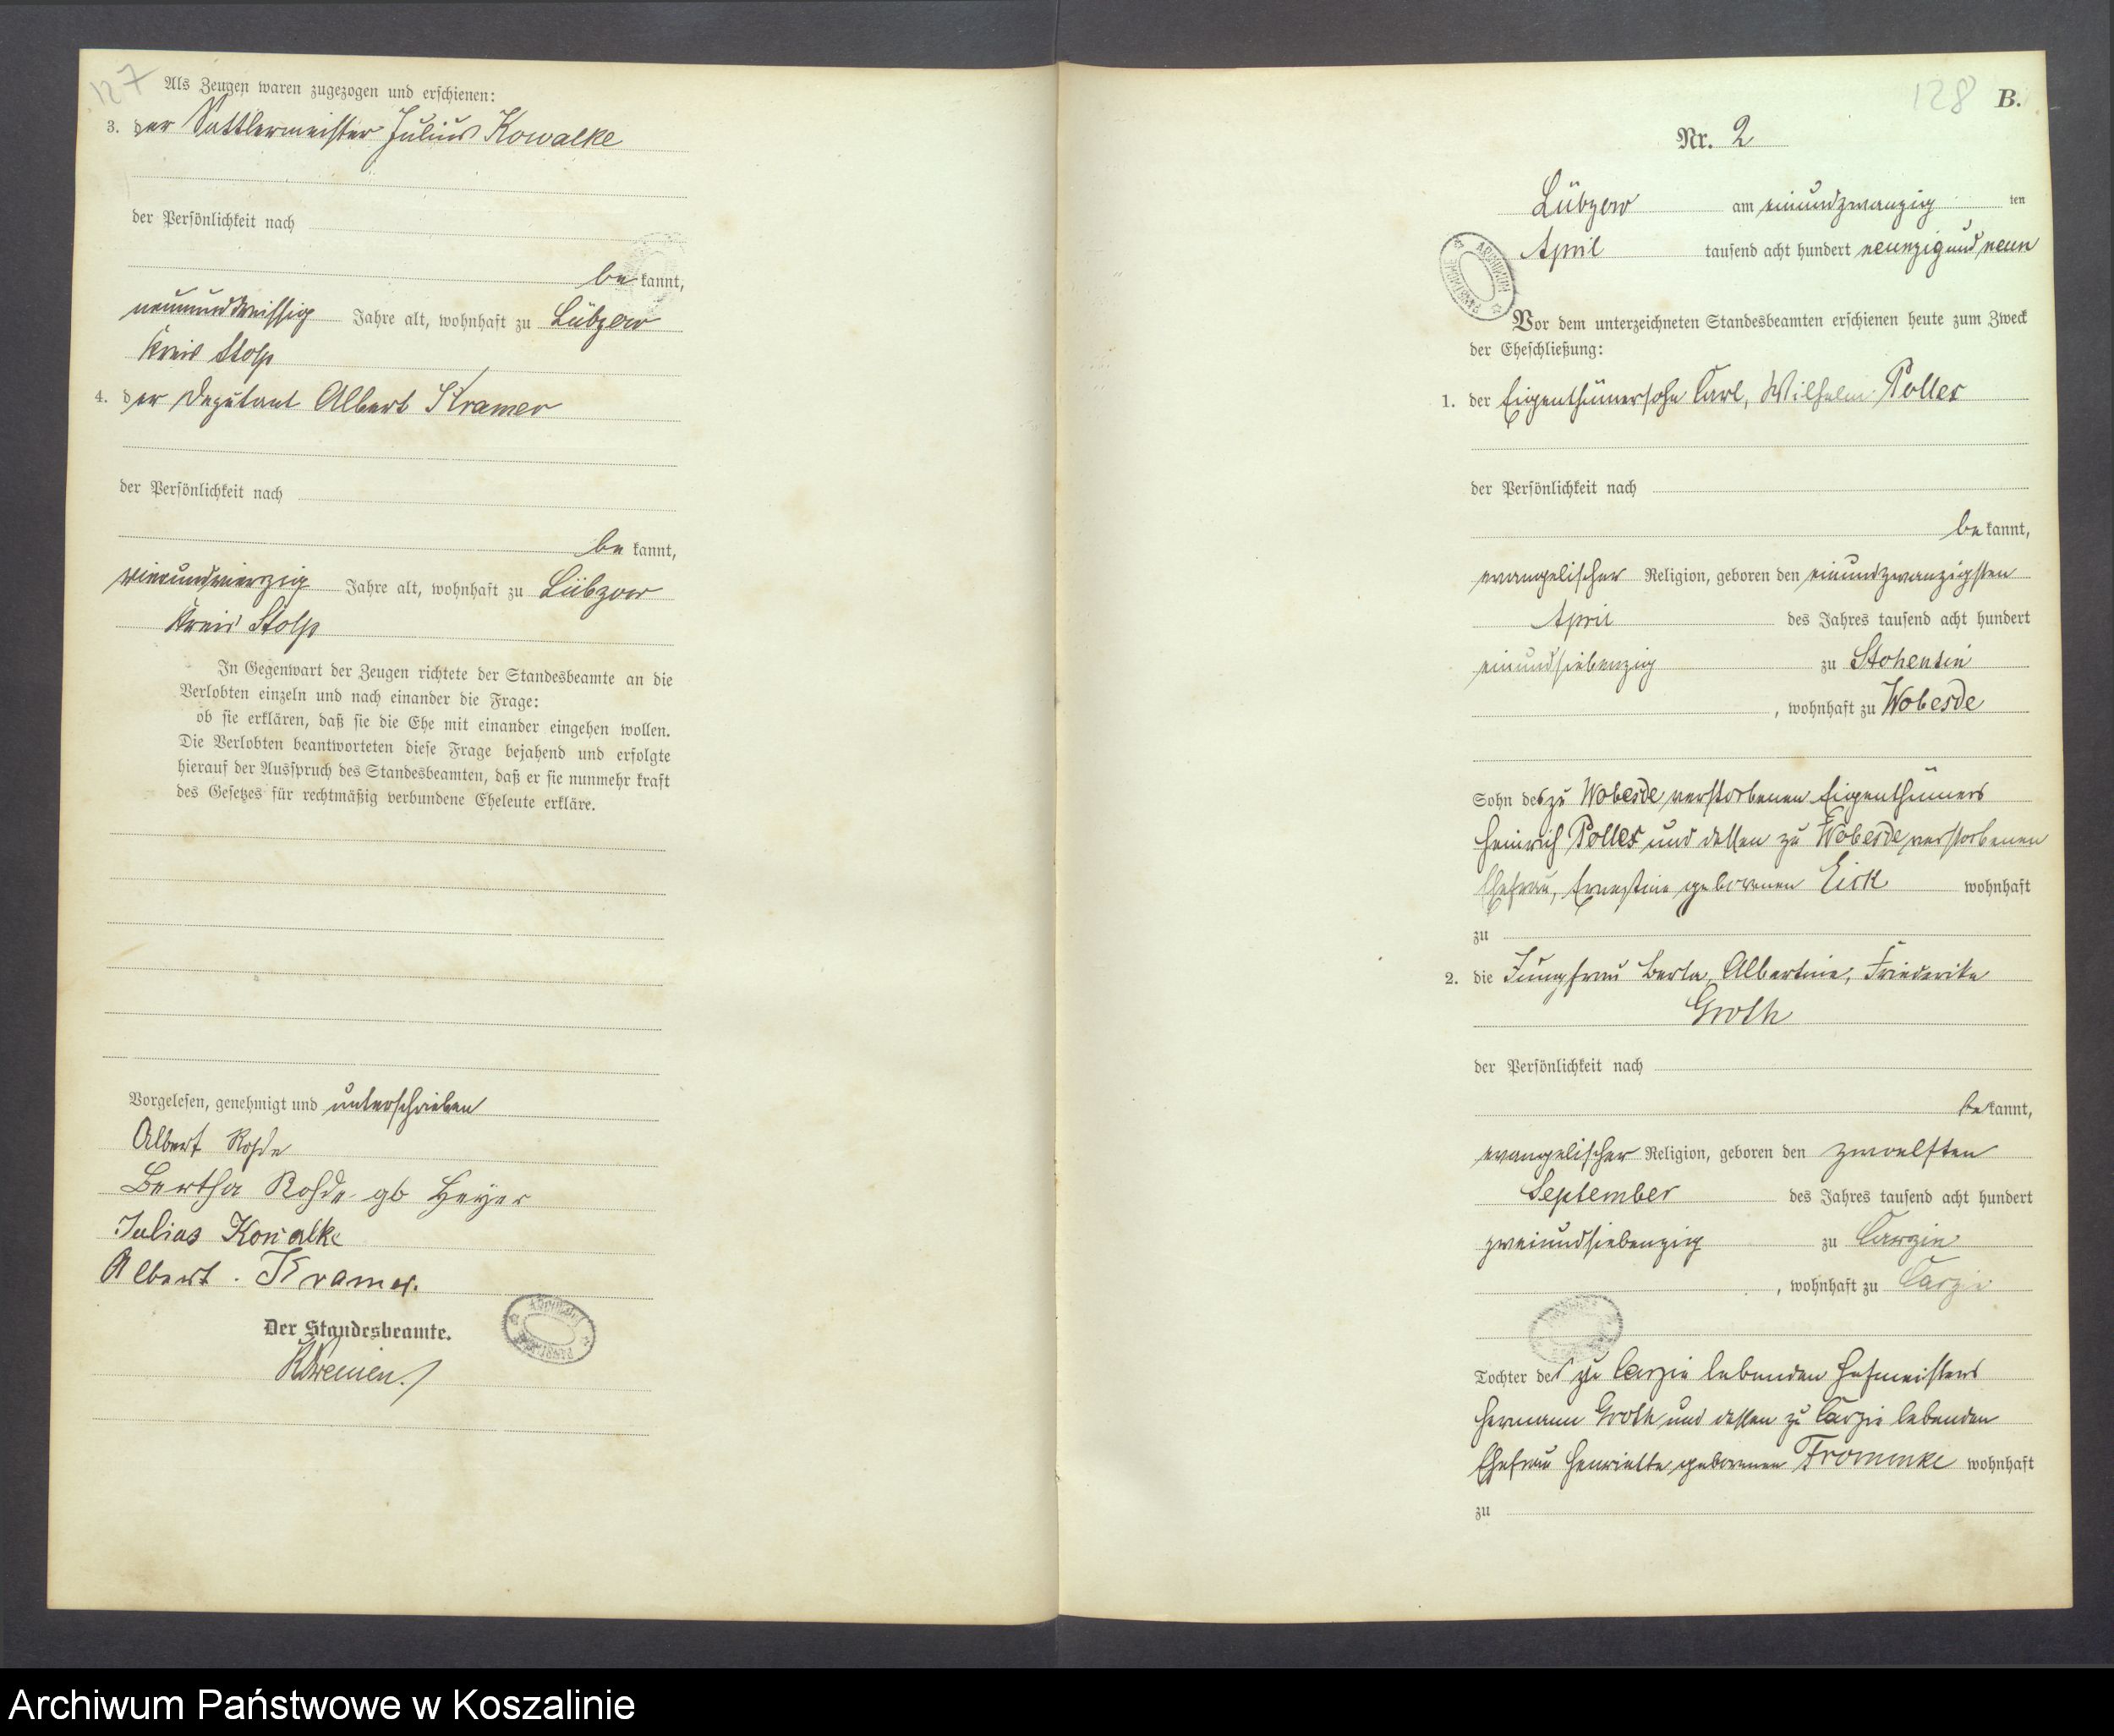 127
Als Zeugen waren zugezogen und erschienen:
3. der Sattlermeister Julius Kowalke
der Persönlichkeit nach
bekannt,
neununddreissig Jahre alt, wohnhaft zu Lübzow
Kreis Stolp
4. der Deputant Albert Kramer
der Persönlichkeit nach
bekannt,
Jahre alt, wohnhaft zu Lübzow
Kreis Stolp
In Gegenwart der Zeugen richtete der Standesbeamte an die
Verlobten einzeln und nach einander die Frage:
ob sie erklären, daß sie die Ehe mit einander eingehen wollen.
Die Verlobten beantworteten diese Frage bejahend und erfolgte
hierauf der Ausspruch des Standesbeamten, daß er sie nunmehr kraft
des Gesetzes für rechtmäßig verbundene Eheleute erkläre.
Vorgelesen, genehmigt und unterschrieben
Albert Rohde
Bertha Rohde gb Heyer
Julius Kowalke
Albert Kramer.
Der Standesbeamte.
128 B.
Nr. 2
Lübzow am einundzwanzig ten
April tausend acht hundert neunzig und neun
Vor dem unterzeichneten Standesbeamten erschienen heute zum Zweck
der Eheschließung:
1. der Eigenthümersohn Carl, Wilhelm Polles
der Persönlichkeit nach
bekannt,
evangelischer Religion, geboren den einundzwanzigsten
April des Jahres tausend acht hundert
einundsiebenzig zu Stohentin
, wohnhaft zu Wobesde
Sohn des zu Wobesde verstorbenen Eigenthümers
Heinrich Polles und dessen zu Wobesde verstorbenen
Ehefrau, Ernestine geborenen wohnhaft
zu
2. die Jungfrau Berta, Albertine, Friederike
Groth
der Persönlichkeit nach
bekannt,
evangelischer Religion, geboren den zwoelften
September des Jahres tausend acht hundert
zweiundsiebenzig zu Carzin
, wohnhaft zu Carzin
Tochter des zu Carzin lebenden Hofmeisters
Hermann Groth und dessen zu Carzin lebenden
Ehefrau Henriette geborenen Frommke wohnhaft
zu
Archiwum Państwowe w Koszalinie